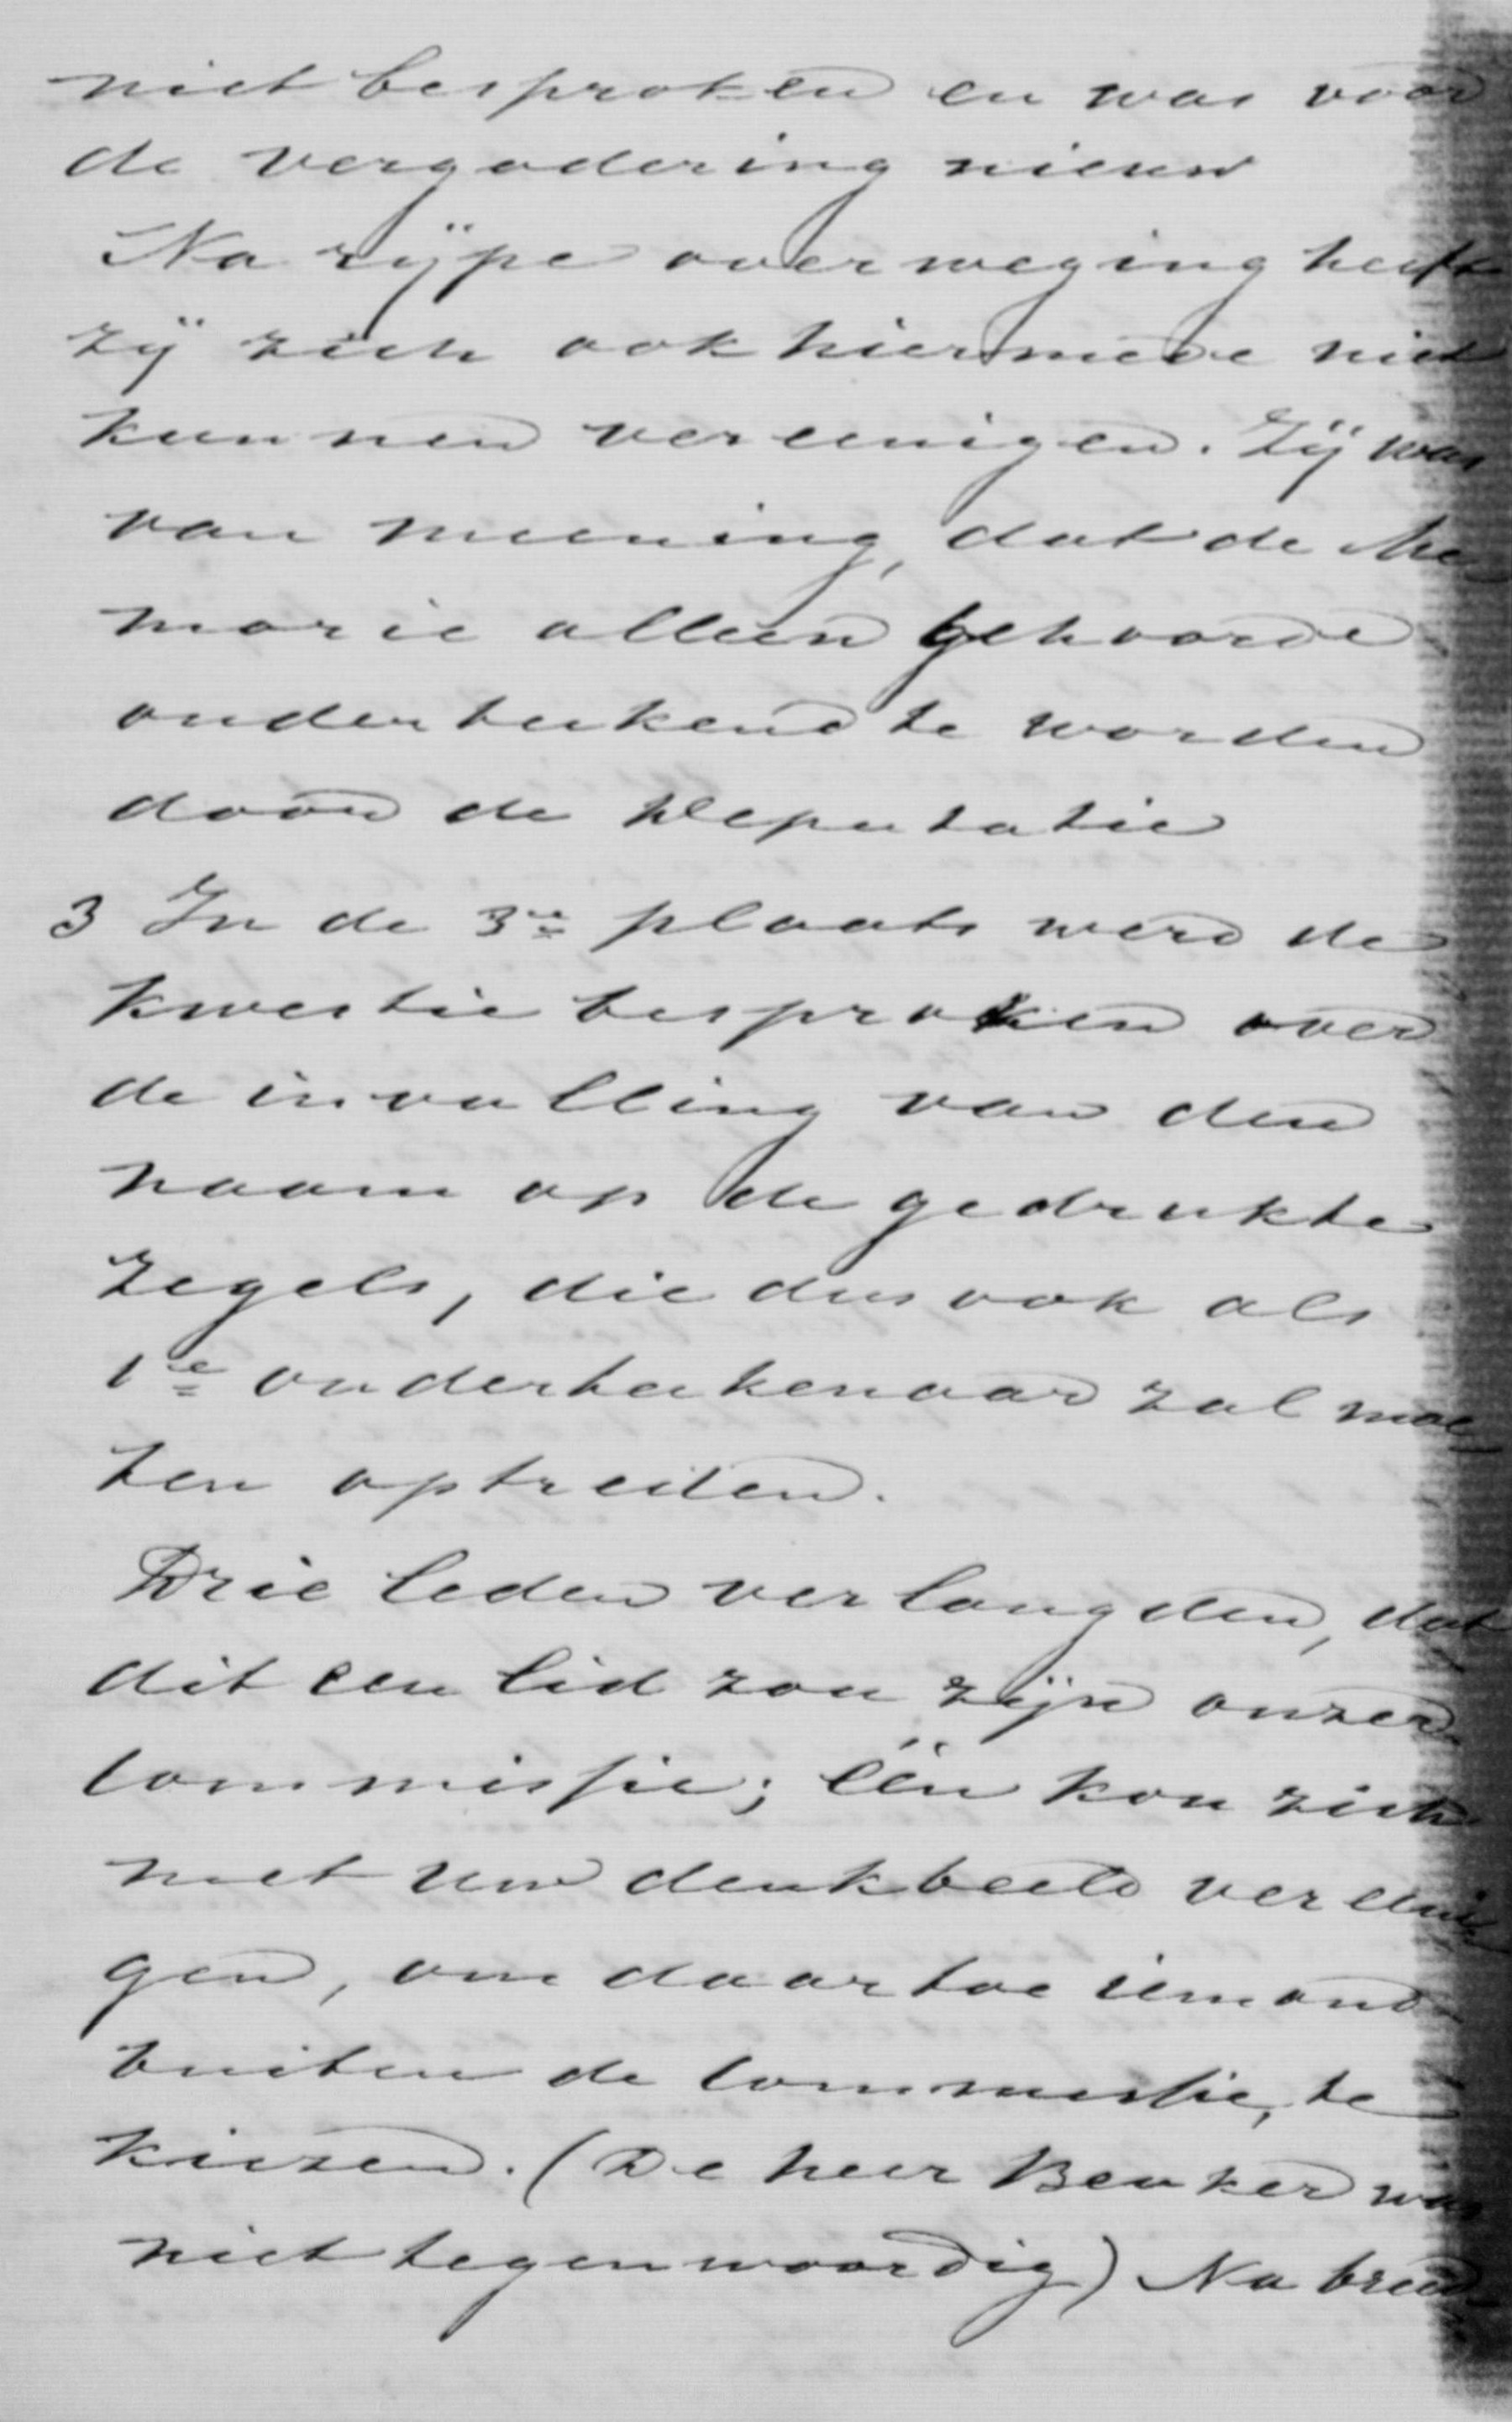 niet besproken en was voor
de vergadering nieuw
Na rijpe overweging heeft
zij zich ook hiermede niet
kunnen vereenigen. Zij was
van meening, dat de Me-
morie alleen behoorde
onderteekend te worden
door de Deputatie
3 In de 3e plaats werd de
kwestie besproken over
de invulling van den
naam op de gedrukte
zegels, die dus ook als
1e onderteekenaar zal moe-
ten optreden.
Drie leden verlangden, dat
dit een lid zou zijn onzer
Commissie; één kon zich
met uw denkbeeld vereeni
gen, om daartoe iemand
buiten de Commissie, te
kiezen. (De heer Beuker was
niet tegenwoordig) Na breed